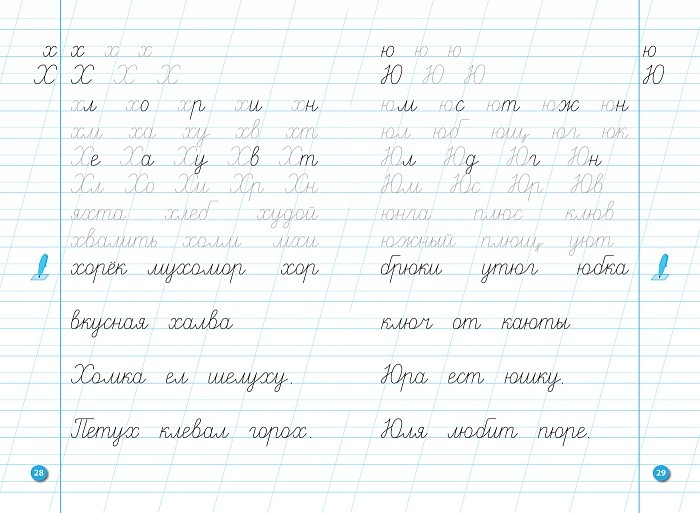 х х х х
Х Х Х Х
хл хо хр хи хн
хм ха ху хв хт
Хе Ха Ху Хв Хт
Хл Хо Хи Хр Хн
яхта хлеб худой
хвалить холм мхи
хорёк мухомор хор
вкусная халва
Хомка ел шелуху.
Петух клевал горох.
28
ю ю ю ю
Ю Ю Ю Ю
юм юс ют юж юн
юл юб ющ юг юк
Юл Юд Юг Юн
Юм Юс Юр Юв
юнга плюс клюв
южный плющ уют
брюки утюг юбка
ключ от каюты
Юра ест юшку.
Юля любит пюре.
29